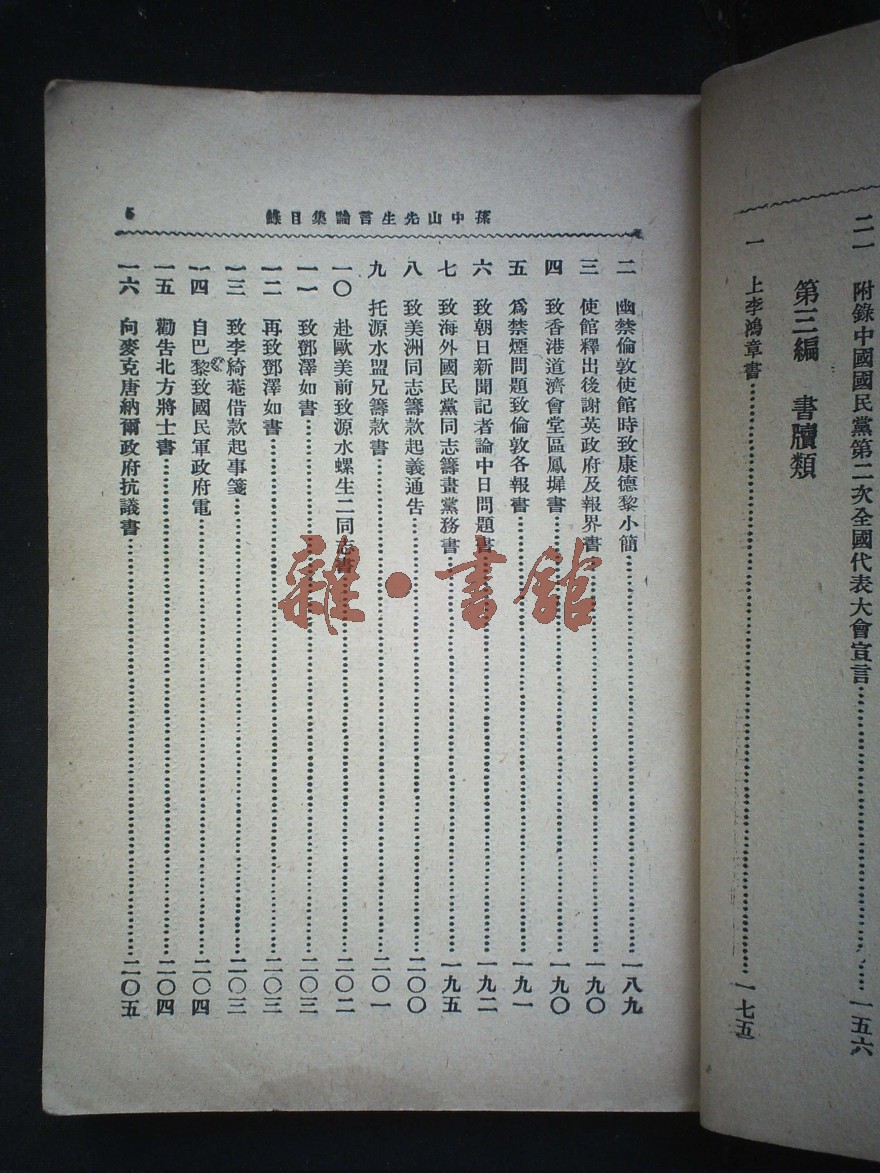 二一 附錄中國國民黨第二次全國代表大會宣言…一五六
第三編 書牘類
一 上李鴻章書…一七五
孫中山先生言論集目錄 5
二 幽禁倫敦使館時致康德黎小簡…一八九
三 使館釋出後謝英政府及報界書…一九〇
四 致香港道濟會堂區鳳墀書…一九〇
五 爲禁煙問題致倫敦各報書…一九一
六 致朝日新聞記者論中日問題書…一九二
七 致海外國民黨同志籌畫黨務書…一九五
八 致美洲同志籌款起義通告…二〇〇
九 托源水盟兄籌款書…二〇一
一〇 赴歐美前致源水螺生二同志書…二〇二
一一 致鄧澤如書…二〇三
一二 再致鄧澤如書…二〇三
一三 致李綺菴借款起事箋…二〇三
一四 自巴黎致國民軍政府電…二〇四
一五 勸告北方將士書…二〇四
一六 向麥克唐納爾政府抗議書…二〇五
雜·書館